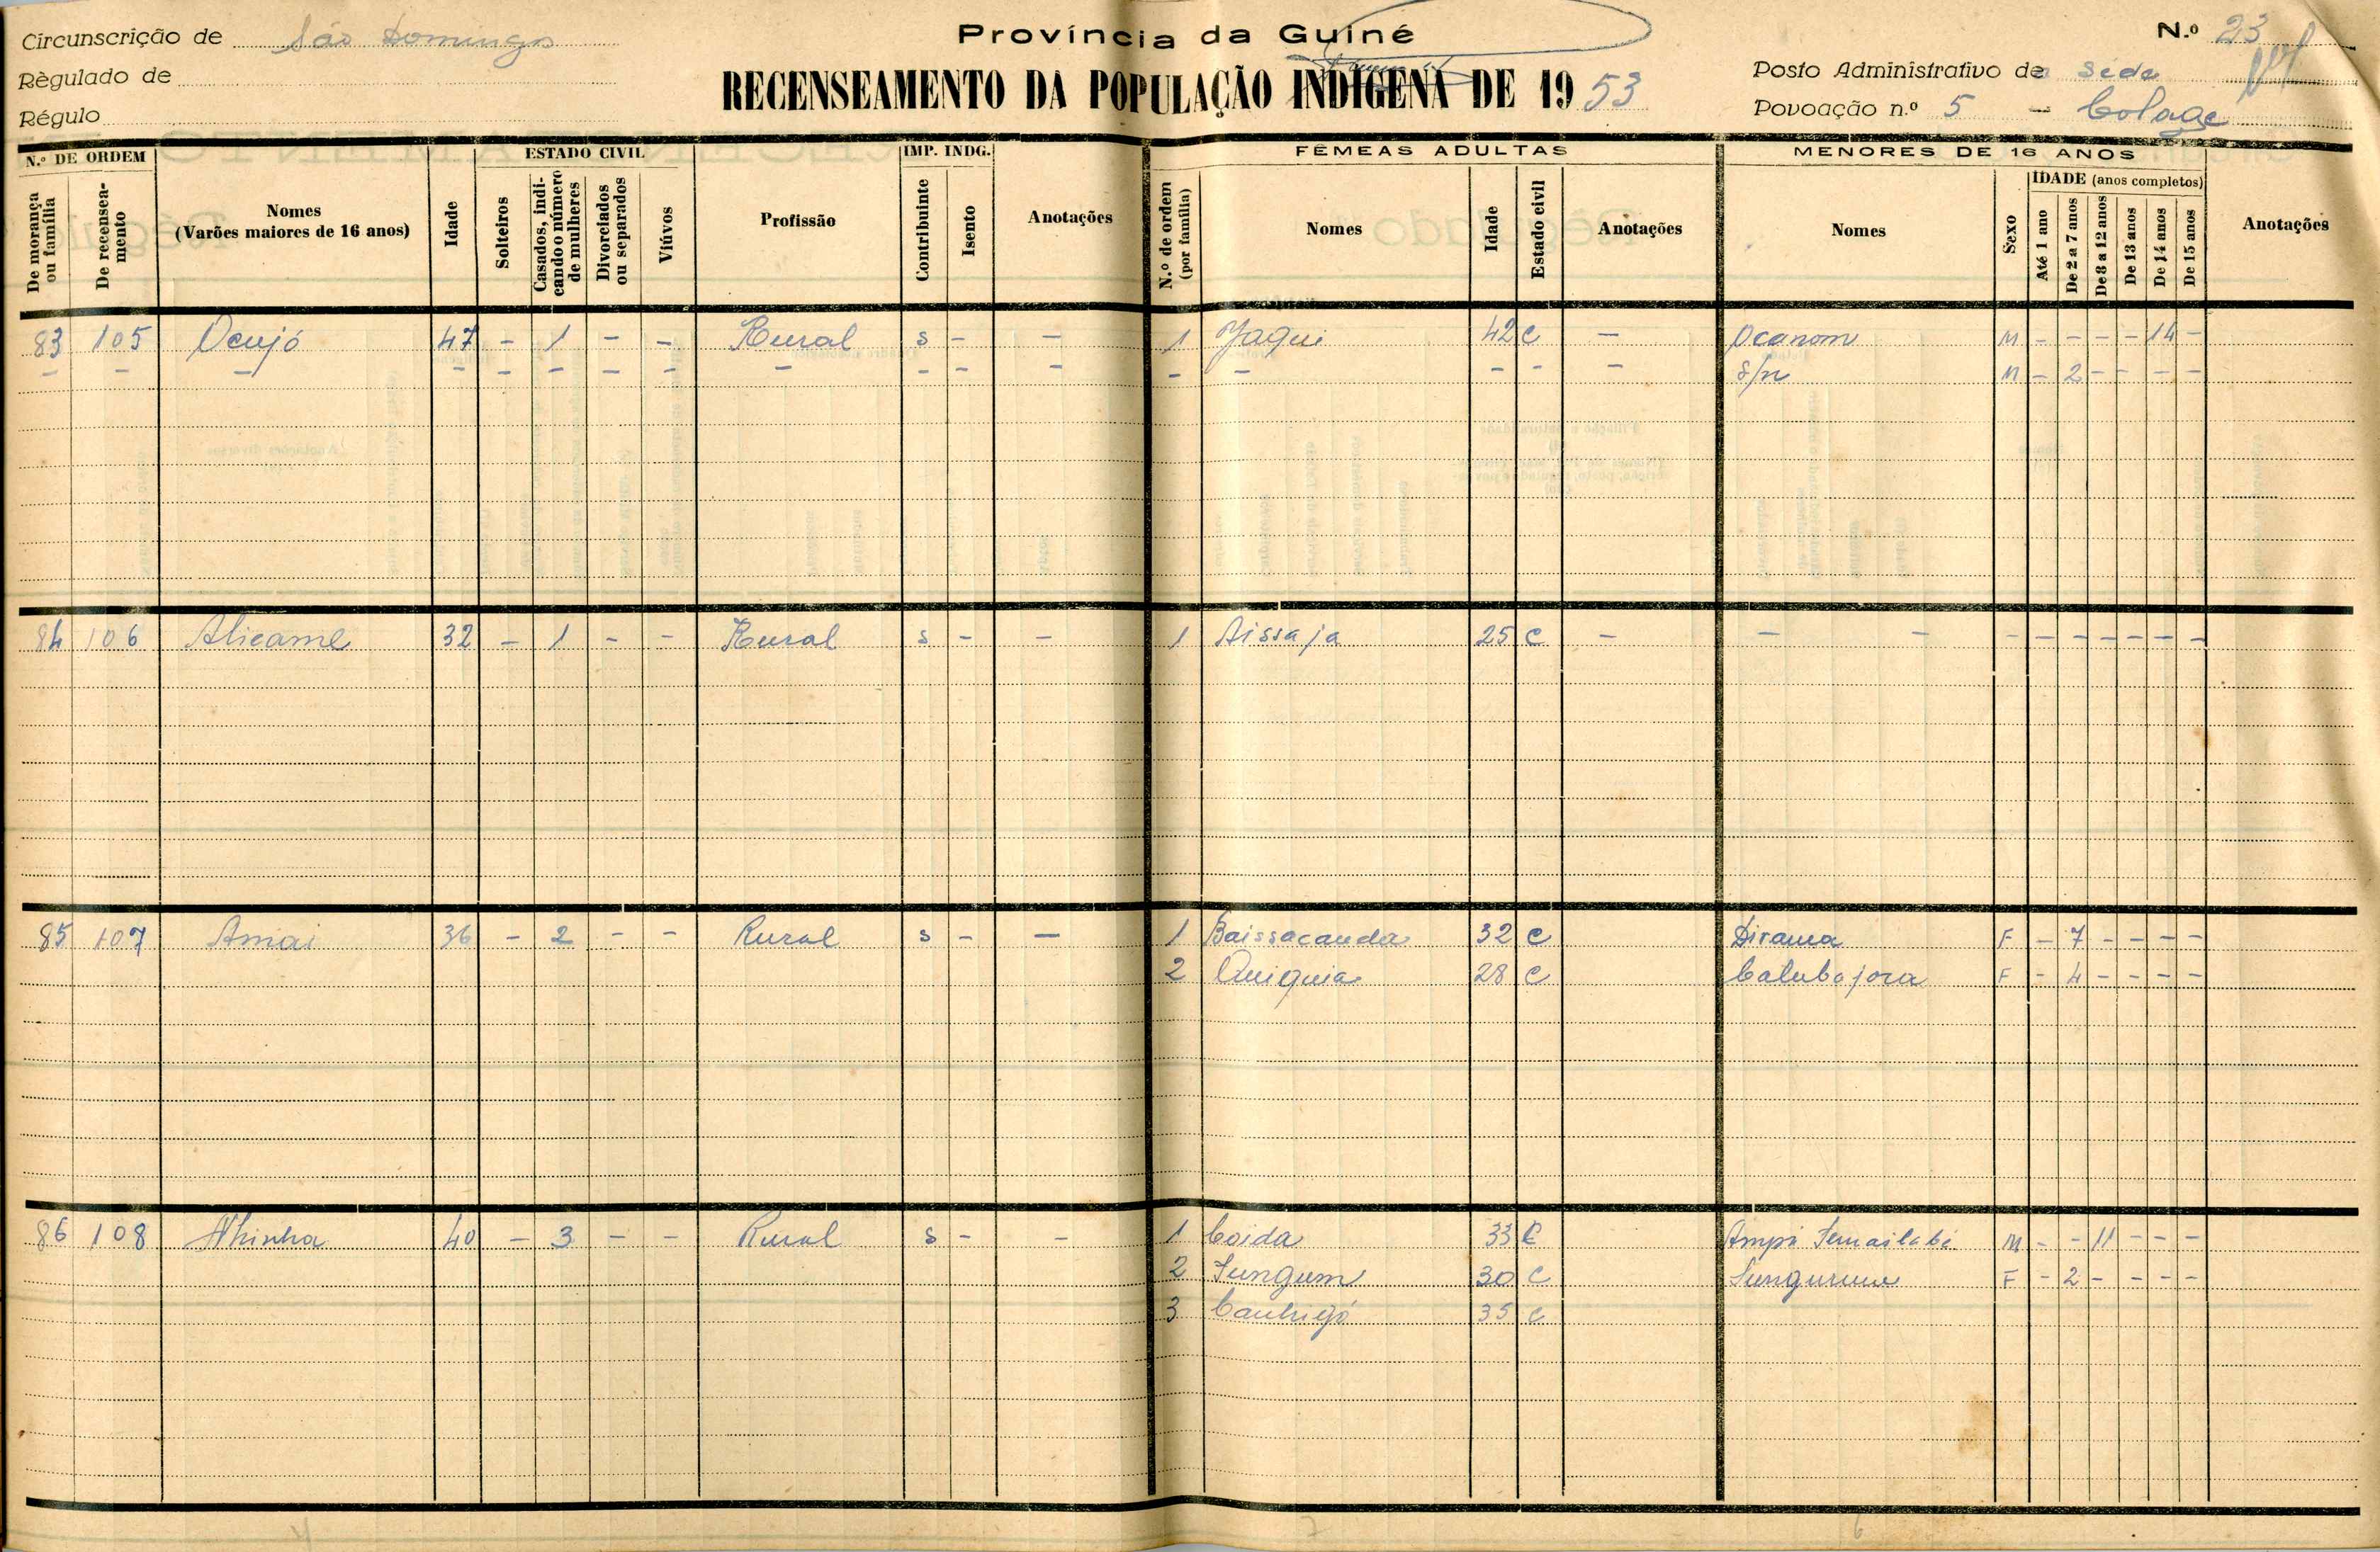 Circunscrição de São Domingos
Província da Guiné
N.º 23
Règulado de
RECENSEAMENTO DA POPULAÇÃO INDÍGENA DE 1953
Posto Administrativo de Sede
Régulo
Povoação n.º 5 - Colage
N.º DE ORDEM
ESTADO CIVIL
IMP. INDG.
FÊMEAS ADULTAS
MENORES DE 16 ANOS
De morança ou família
De recenseamento
Nomes (Varões maiores de 16 anos)
Idade
Solteiros
Casados, indicando o número de mulheres
Divorciados ou separados
Viúvos
Profissão
Contribuinte
Isento
Anotações
N.º de ordem (por família)
Nomes
Idade
Estado civil
Anotações
Nomes
Sexo
IDADE (anos completos)
Até 1 ano
De 2 a 7 anos
De 8 a 12 anos
De 13 anos
De 14 anos
De 15 anos
Anotações
83 105 Ocujó 47 - 1 - - Rural s - - 1 Jaqui 42 C - Ocanom M - - - - 14 -
- - - - - - - - - - - - - - - - - S/n M - 2 - - - -
84 106 Alicame 32 - 1 - - Rural s - - 1 Aissaja 25 C - - - - - - - - - -
85 107 Amai 36 - 2 - - Rural s - - 1 Baissacanda 32 C Dirama F - 7 - - - -
2 Quiquia 28 C Calubajora F - 4 - - - -
86 108 Nhinha 40 - 3 - - Rural s - - 1 Coida 33 C Ampá M - - 11 - - -
2 Sungum 30 C F - 2 - - - -
3 35 C